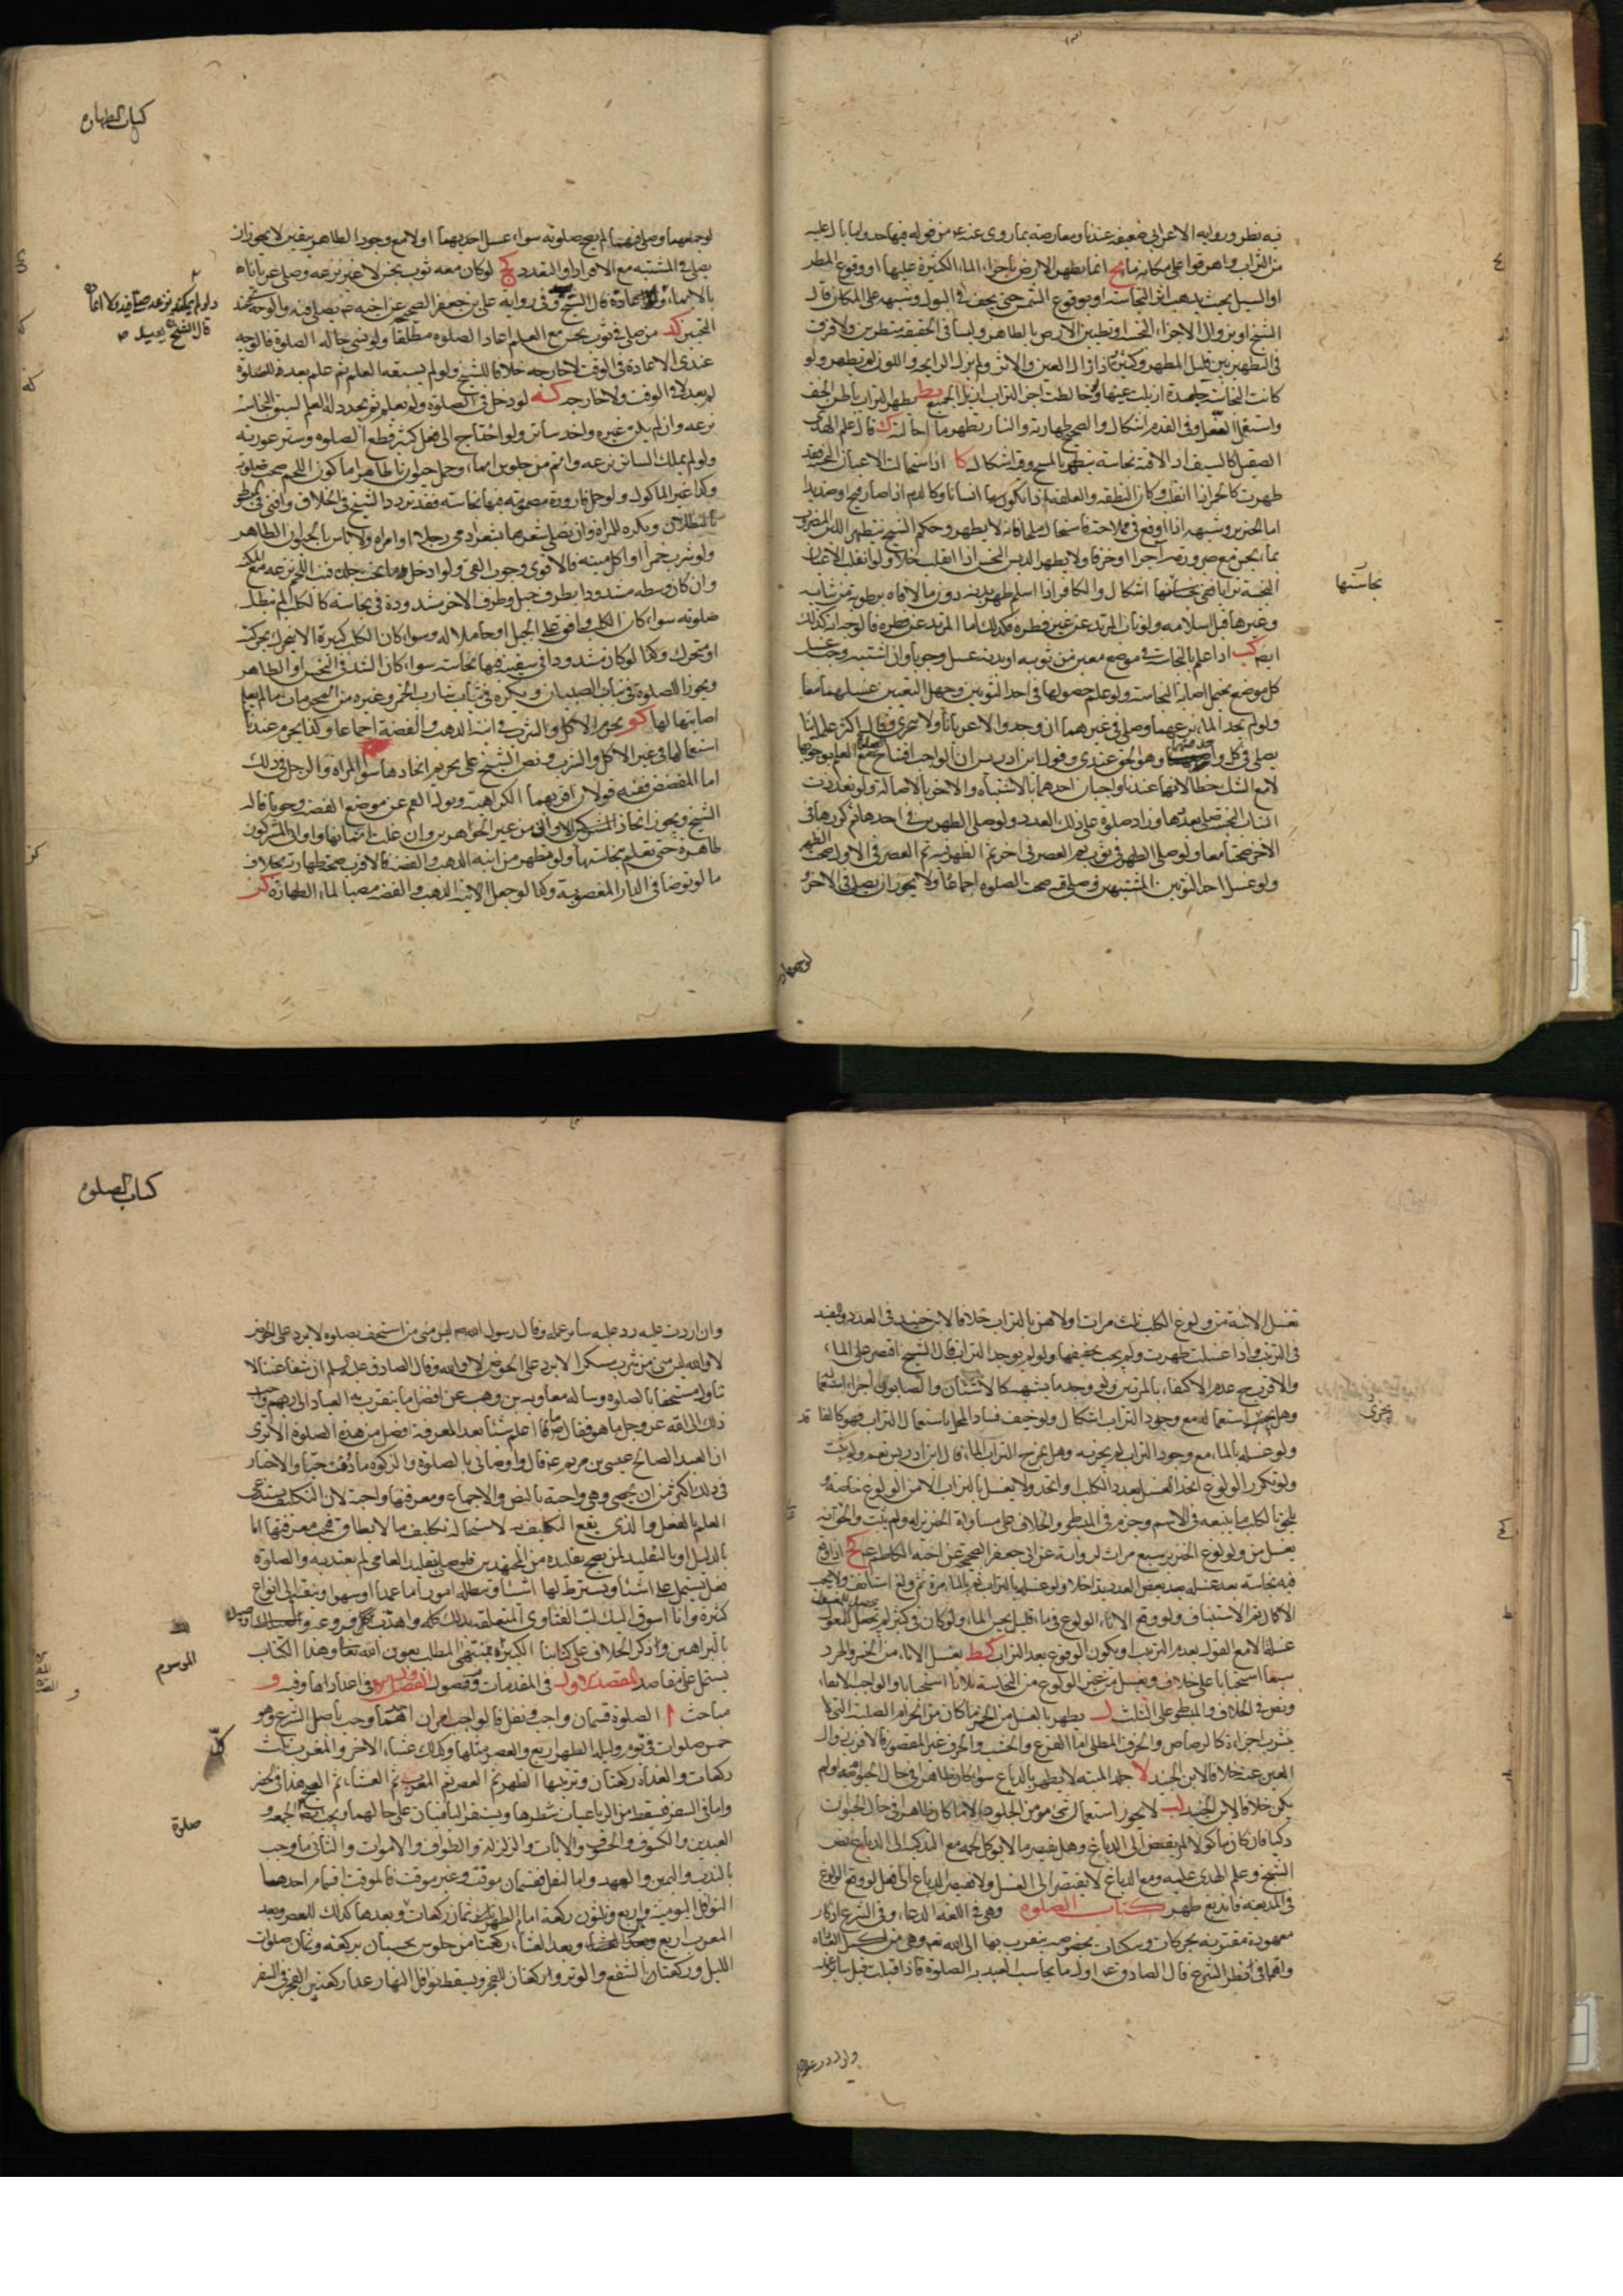 فيه نظر ورواية الاعرابي ضعيفة عندنا ومعارضة بما روى عنه ع من قوله فيها خذوا ما بال عليه
من التراب واهرقوا على مكانه ماء يح انما يطهر الارض باجراء الماء الكثير عليها او وقوع المطر
او السيل بحيث يذهب اثر النجاسة او بوقوع الشمس حتى يجف في البول وشبهه على المكان قال
الشيخ او بزوال الاجزاء النجسة او بتطيين الارض بالطاهر وليسا في الحقيقة مطهرين ولا فرق
في التطهير بين قليل المطهر وكثيره اذا زال العين والاثر ولو لم يزل الرايحة واللون لم تطهر ولو
كانت النجاسة جامدة ازيلت عينها ولو خالطت اجزاء التراب ازيل الجميع يط يطهر التراب باطن الخف
واسفل النعل وفي القدم اشكال والصحيح طهارته والنار يطهر ما احالته ك قال علم الهدى
الصقيل كالسيف اذا لاقته نجاسة يطهر بالمسح وفيه اشكال كا اذا استحالت الاعيان النجسة فقد
طهرت كالخمر اذا انقلب وكان النطفة والعلقة اذا تكون منها انسانا وكالدم اذا صار قيحا او صديدا
اما الخنزير وشبهه اذا وقع في ملاحة فاستحال ملحا فانه لا يطهر وحكم الشيخ بتطهير اللبن المضروب
بماء نجس مع صيرورته آجرا او خزفا ولا يطهر الدبس النجس اذا انقلب خلا ولو انقلب الاعيان
النجسة ترابا ففي نجاستها اشكال والكافر اذا اسلم طهر بدنه دون ما لاقاه برطوبة من ثيابه
نجاستها
وغيرها قبل اسلامه ولو تاب المرتد عن غير فطرة فكذلك اما المرتد عن فطرة فالوجه انه كذلك
ايضا كب اذا علم بالنجاسة في موضع معين من ثوبه او بدنه غسل وجوبا وان اشتبه وجب غسل
كل موضع يحتمل اصابة النجاسة ولو علم حصولها في احد الثوبين وجهل التعيين غسلهما معا
ولو لم يجد الماء نزعهما وصلى في غيرهما ان وجد والا عريانا ولا يتحرى وقال اكثر علمائنا
يصلي في كل واحد منهما وهو الحق عندي وقول ابن ادريس ان الواجب افتتاح الصلوة مع العلم بوجوبها
لا مع الشك خطا لانهما عندنا واجبان احدهما بالاشتباه والاخر بالاصالة ولو تعددت
الثياب النجسة صلى بعددها وزاد صلوة على ذلك العدد ولو صلى الظهرين في احدهما ثم كررهما في
الاخر صحتا معا ولو صلى الظهر في ثوب ثم العصر في اخر ثم الظهر فيه ثم العصر في الاول صحت الظهر
ولو غسل احد الثوبين المشتبهين وصلى فيه صحت الصلوة اجماعا ولا يجوز ان يصلي في الاخر و
لو جمعهما
كتاب الطهارة
لو جمعهما وصلى فيهما لم يصح صلوته سواء غسل احديهما اولا مع وجود الطاهر بيقين لا يجوز ان
يصلي في المشتبه مع الافراد او التعدد كج لو كان معه ثوب نجس لا غير نزعه وصلى عريانا
بالايماء ولا اعادة قال الشيخ وفي رواية علي بن جعفر الصحيحة عن اخيه ع يصلي فيه والوجه عندي
ولو لم يمكنه نزعه صلى فيه ولا اعادة
قال الشيخ يعيد
التخيير كد من صلى في ثوب نجس مع العلم اعاد الصلوة مطلقا ولو نسي حالة الصلوة فالوجه
عندي الاعادة في الوقت لا خارجه خلافا للشيخ ولو لم يسبقه العلم ثم علم بعد الصلوة
لم يعد لا في الوقت ولا خارجه كه لو دخل في الصلوة ولم يعلم ثم تجدد له العلم لسبق النجاسة
نزعه وان لم يكن غيره واخذ ساترا ولو احتاج الى فعل كثير قطع الصلوة وستر عورته
ولو لم يملك الساتر نزعه واتم من جلوس ايماء ولو حمل حيوانا طاهرا ماكول اللحم صحت صلوته
وكذا غير الماكول ولو حمل قارورة مضمومة فيها نجاسة فقد تردد الشيخ في الخلاف وافتى في المبسوط
بالبطلان ويكره للمراة ان تصل شعرها بشعر ادمي رجل او امراة ولا باس بالحيوان الطاهر
ولو شرب خمرا او اكل ميتة فالاقوى وجوب القي ولو ادخل دما تحت جلده فنبت اللحم نزعه مع المكنة
وان كان وسطه مشدودا بطرف حبل وطرف الاخر مشدودة في نجاسة كالكلب لم تبطل
صلوته سواء كان الكلب واقفا على الحبل او حاملا له وسواء كان الكلب كبيرا لا يتحرك بحركته
او متحرك وكذا لو كان مشدودا في سفينة فيها نجاسة سواء كان الشد في النجس او الطاهر
ويجوز الصلوة في ثياب الصبيان ويكره في ثياب شارب الخمر وغيره من المحرمات ما لم يعلم
اصابتها لها كو يحرم الاكل والشرب في انية الذهب والفضة اجماعا وكذا يحرم عندنا
استعمالها في غير الاكل والشرب ونص الشيخ على تحريم اتخاذها سواء المراة والرجل في ذلك
اما المفضض ففيه قولان اقربهما الكراهية ويعزل الفم عن موضع الفضة وجوبا قاله
الشيخ ويجوز اتخاذ الاواني من غير الجواهر وان غلت اثمانها واواني المشركين
طاهرة حتى تعلم نجاستها ولو تطهر من انية الذهب والفضة فالاقرب صحة طهارته بخلاف
ما لو توضا في الدار المغصوبة وكذا لو جعل الانية الذهب والفضة مصبا لماء الطهارة كز
تغسل الانية من ولوغ الكلب ثلث مرات اولاهن بالتراب خلافا لابن جنيد في العدد والمفيد
في الترتيب واذا غسلت طهرت ولم يجب تجفيفها ولو لم يوجد التراب قال الشيخ اقتصر على الماء
والاقرب عدم الاكتفاء بالمرتين ولو وجد ما يشبهه كالاشنان والصابون اجزاء استعماله
وهل يجزي استعماله مع وجود التراب اشكال ولو خيف فساد المحل باستعمال التراب فهو كالفاقد
يجزي
ولو غسله بالماء مع وجود التراب لم يجزيه وهل يمزج التراب بالماء قال ابن ادريس نعم ولم يثبت
ولو تكرر الولوغ اتحد الغسل تعدد الكلب او اتحد ولا يغسل بالتراب الا من الولوغ خاصة و
يلحق بالكلب ما يتبعه في الاسم وجزم في المبسوط والخلاف على مساواة الخنزير له ولم يثبت والحق انه
يغسل من ولوغ الخنزير سبع مرات لرواية علي بن جعفر الصحيحة عن اخيه الكاظم ع كح اذا وقع
فيه نجاسة بعد غسله بعض العدد تداخلا ولو غسله بالتراب ثم بالماء مرة ثم ولغ استانف ولا يجب
الاكمال ثم الاستيناف ولو وقع الاناء الولوغ في ماء قليل نجس الماء ولو كان في كثير لم يحصل الغسل
غسلة الا مع القول بعدم الترتيب او يكون الوقوع بعد التراب كط يغسل الاناء من الخمر والجرذ
سبعا استحبابا على خلاف ويغسل من غير الولوغ من النجاسة ثلاثا استحبابا والواجب الانقاء
ونص في الخلاف والمبسوط على الثلث ل يطهر بالغسل من الخمر ما كان من الخزام الصلبة التي لا
يشرب اجزاءه كالرصاص والخزف المطلي اما القرع والخشب والخزف غير المغضور فالاقرب زوال
العين عنه خلافا لابن الجنيد لا جلد الميتة لا يطهر بالدباغ سواء كان طاهرا في حال الحيوة او لم
يكن خلافا لابن الجنيد لب لا يجوز استعمال شيء من الجلود الا ما كان طاهرا في حال الحيوة
ذكيا فان كان ماكولا لم يفتقر الى الدباغ وهل يفتقر ما لا يؤكل لحمه مع التذكية الى الدباغ نص
الشيخ وعلم الهدى عليه ومع الدباغ لا يفتقر الى الغسل ولا يفتقر الدباغ الى فعل فلو وقع المدبوغ
في المدبغة فاندبغ طهر كتاب الصلوة وهي في اللغة الدعاء وفي الشرع اذكار
معهودة مقترنة بحركات وسكنات مخصوصة يتقرب بها الى الله تعالى وهي من اكمل العبادات
واهمها في نظر الشرع قال الصادق ع اول ما يحاسب العبد به الصلوة فاذا قبلت قبل سائر عمله
وان ردت عليه
كتاب الصلوة
وان ردت عليه رد عليه سائر عمله وقال رسول الله ص ليس مني من استخف بصلوته لا يرد علي الحوض
لا والله ليس مني من شرب مسكرا لا يرد علي الحوض لا والله وقال الصادق عليه السلم ان شفاعتنا لا
تنال مستخفا بالصلوة وساله معاوية بن وهب عن افضل ما يتقرب به العباد الى ربهم واحب
ذلك الى الله عز وجل ما هو فقال ما اعلم شيئا بعد المعرفة افضل من هذه الصلوة الا ترى
ان العبد الصالح عيسى بن مريم ع قال واوصاني بالصلوة والزكوة ما دمت حيا والاخبار
في ذلك اكثر من ان يحصى وهي واجبة بالنص والاجماع ومعرفتها واجبة لان التكليف يستدعي
العلم بالفعل والذي يقع المكلف به لاستحالة تكليف ما لا يطاق فيجب معرفتها اما
بالدليل او بالتقليد لمن يصح تقليده من المجتهدين فلو صلى بتقليد العامي لم يعتد به والصلوة
فعل يشتمل على اشياء ويشترط لها اشياء وتبطله امور اما عمدا او سهوا وينقسم الى انواع
كثيرة وانا اسوق اليك لب الفتاوى المتعلقة بذلك كله واهذب كل فروعه
بالبراهين واذكر الخلاف على كتابنا الكبير الموسوم بمنتهى المطلب بعون الله تعالى وهذا الكتاب
الموسوم
يشتمل على مقاصد المقصد الاول في المقدمات وفيه فصول الفصل الاول في اعدادها وفيه و
مباحث ا الصلوة قسمان واجب ونفل فالواجب امران احدهما وجب باصل الشرع وهو
خمس صلوات في كل يوم وليلة الظهر اربع والعصر مثلها وكذلك عشاء الاخر والمغرب ثلث
كل
ركعات والغداة ركعتان وترتيبها الظهر ثم العصر ثم المغرب ثم العشاء ثم الصبح هذا في الحضر
واما في السفر فيسقط من الرباعيات شطرها ويستقر الباقيتان على حالهما ويجب صلوة الجمعة و
صلوة
العيدين والكسوف والخوف والايات والزلزلة والطواف والاموات والثاني ما وجب
بالنذب واليمين والعهد واما النفل فقسمان موقت وغير موقت فالموقت اقسام احدها
النوافل اليومية وهي اربع وثلثون ركعة امام الظهر ثمان ركعات وبعدها كذلك للعصر وبعد
المغرب اربع وبعد العشاء ركعتا من جلوس تحسبان بركعة وثمان صلوات
الليل وركعتان الشفع والوتر وركعتان للفجر ويسقط نوافل النهار عدا ركعتين الفجر في السفر